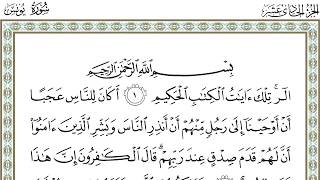 سُورَةُ يُونُسَ الجُزْءُ الحَادِي عَشَرَ
بِسْمِ اللَّهِ الرَّحْمَٰنِ الرَّحِيمِ
الٓر تِلْكَ ءَايَٰتُ الْكِتَٰبِ الْحَكِيمِ ١ أَكَانَ لِلنَّاسِ عَجَبًا
أَنْ أَوْحَيْنَا إِلَىٰ رَجُلٍ مِّنْهُمْ أَنْ أَنذِرِ النَّاسَ وَبَشِّرِ الَّذِينَ ءَامَنُوٓا
أَنَّ لَهُمْ قَدَمَ صِدْقٍ عِندَ رَبِّهِمْ قَالَ الْكَٰفِرُونَ إِنَّ هَٰذَا